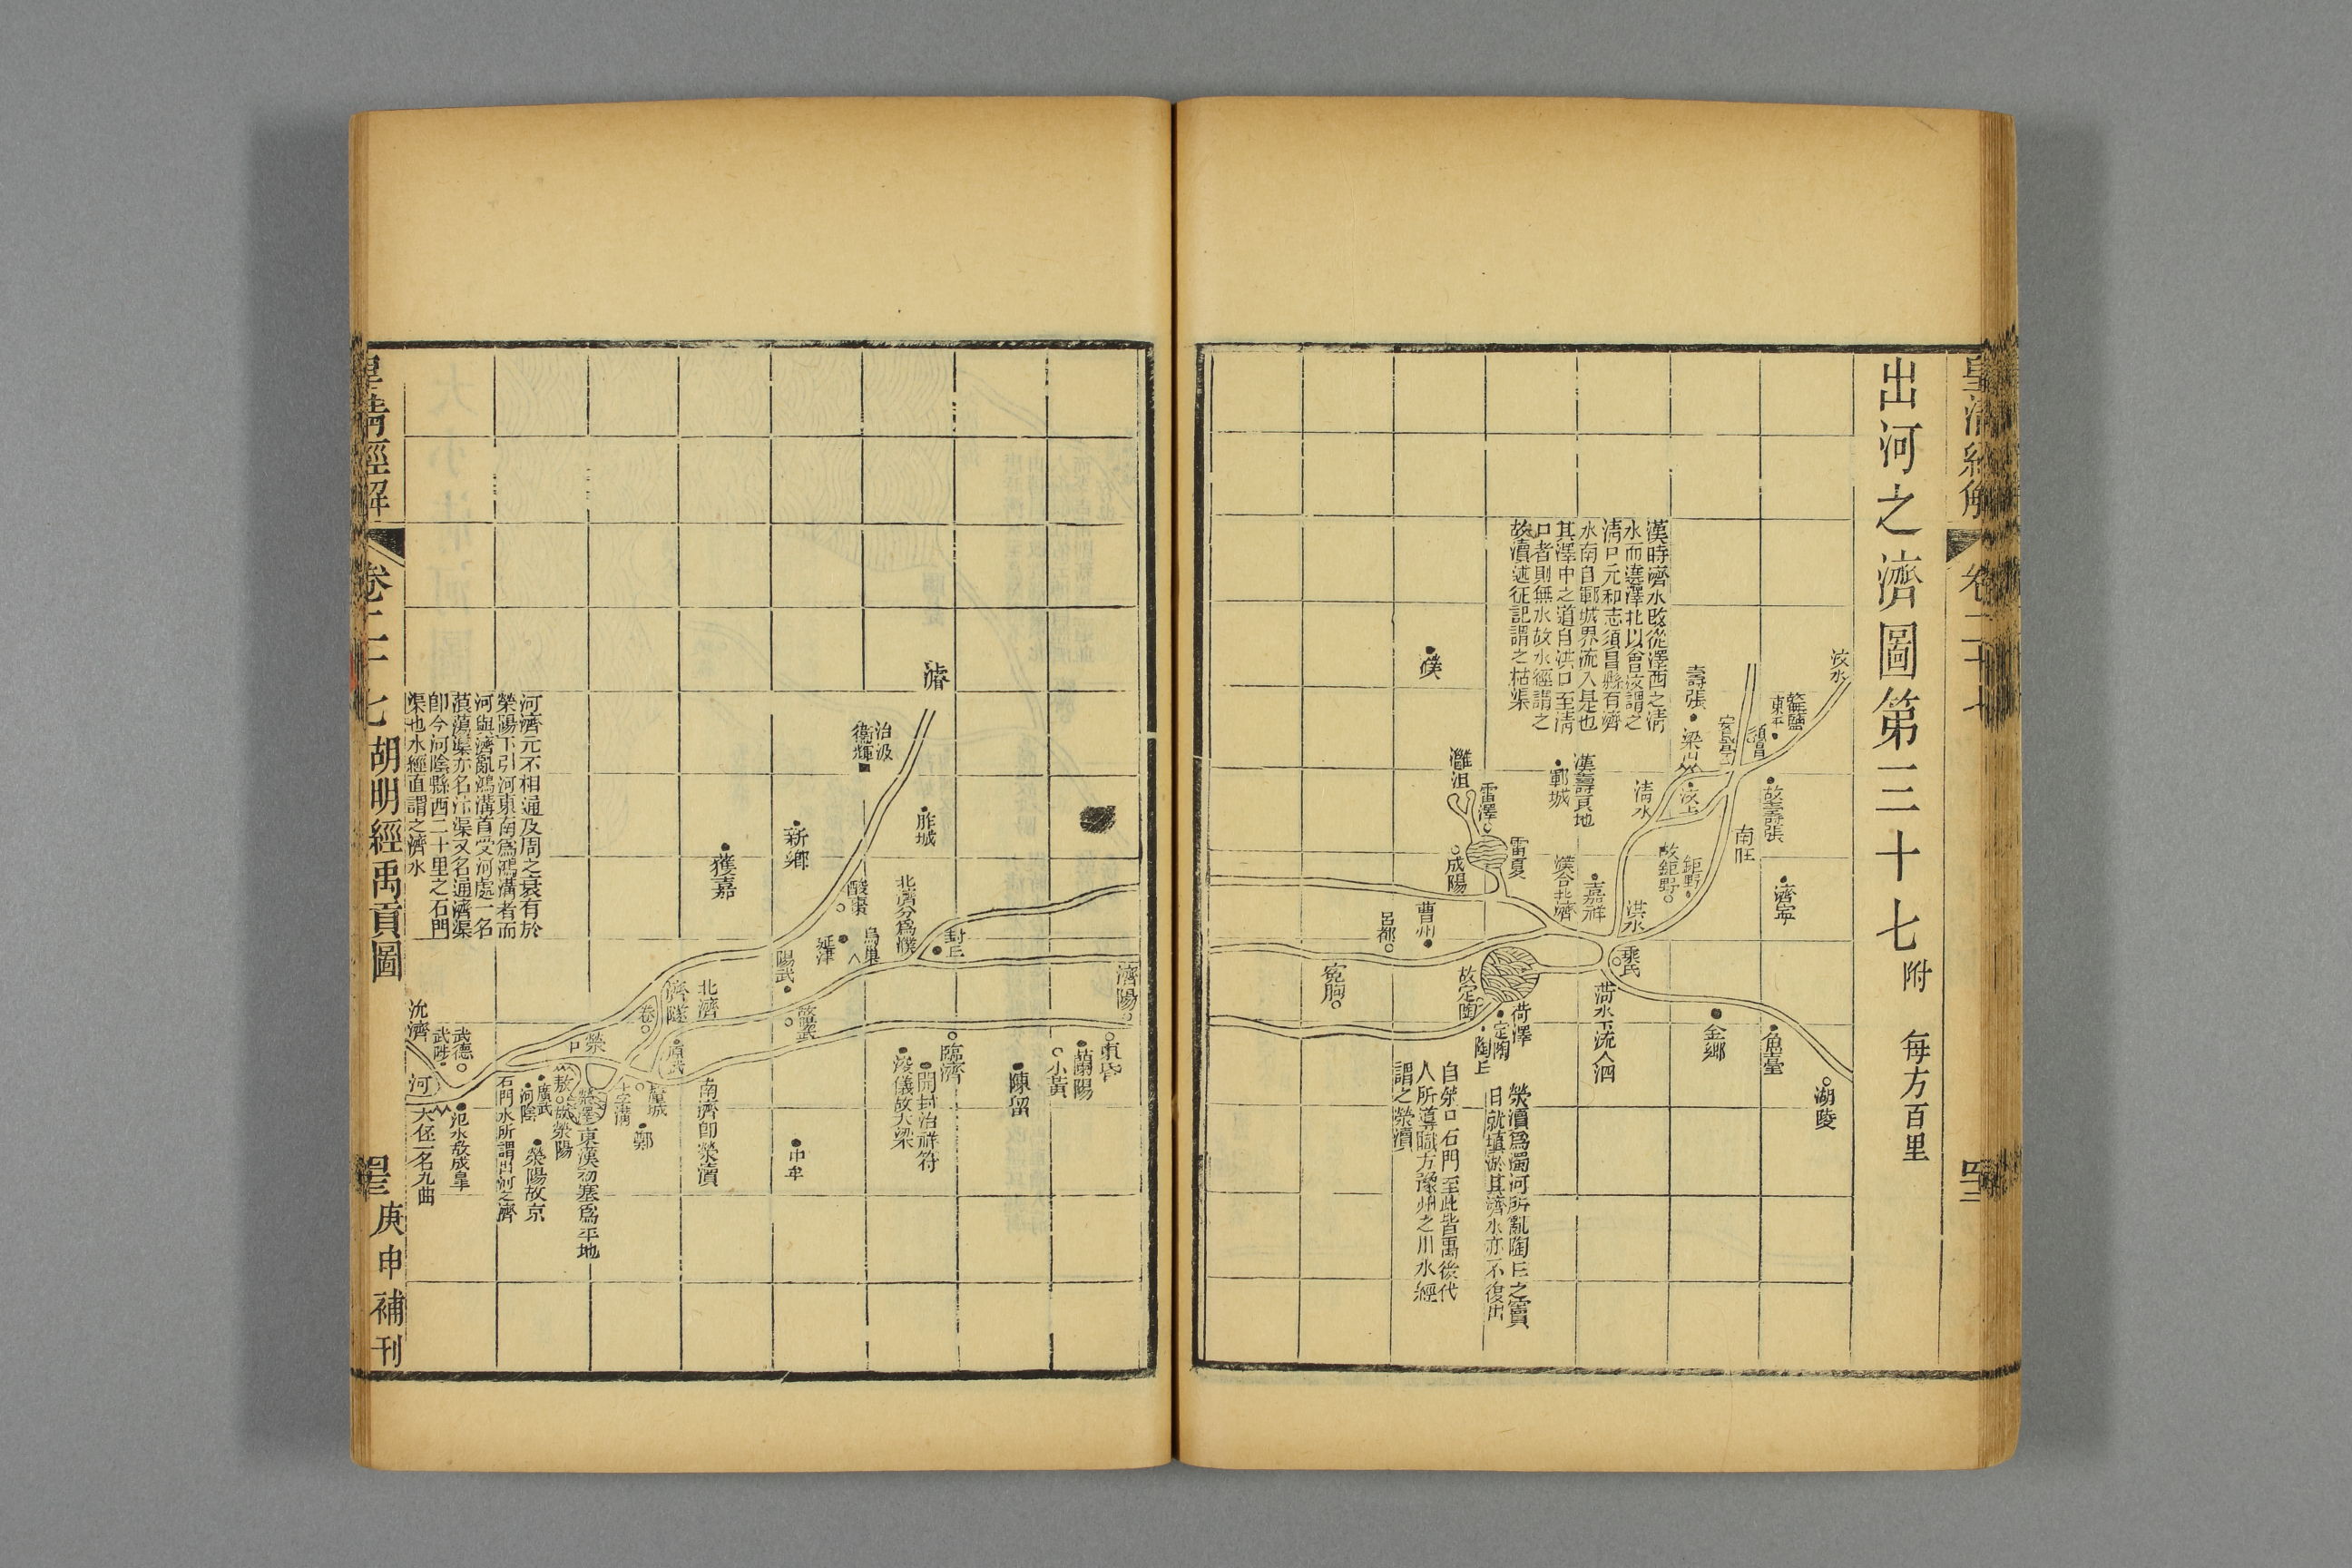 出河之濟圖第三十七附
每方百里
汶水
湖陵
無鹽
東平
須昌
濟寧
故壽張
魚臺
安民亭
南旺
壽張
梁山
汶上
鉅野
故鉅野
金鄉
清水
洪水
乘氏
漢時濟水改從澤西之清
水而遶澤北以會汶謂之
清口元和志須昌縣有濟
水南自鄆城界流入是也
其澤中之道自洪口至清
口者則無水故水經謂之
故瀆述征記謂之枯渠
菏水下流入泗
嘉祥
漢壽良地
鄆城
濮合北濟
雷夏
雷澤
灉沮
成陽
菏澤
定陶
故定陶
陶丘
滎瀆爲濁河所亂陶丘之竇
日就填淤其濟水亦不復出
濮
曹州
呂都
冤朐
自滎口石門至此皆禹後代
人所導職方豫州之川水經
謂之滎瀆
濟陽
東昏
蘭陽
小黃
陳留
封丘
臨濟
開封治祥符
浚儀故大梁
濬
胙城
北濟分爲濮
治汲
衛輝
烏巢
酸棗
延津
新鄉
陽武
故陽武
中牟
獲嘉
北濟
濟隧
南濟卽滎瀆
原武
卷
釐城
鄭
十字溝
滎口
滎澤東漢初塞爲平地
敖城
滎陽
廣武
河陰
滎陽故京
石門水所謂出河之濟
河濟元不相通及周之衰有於
滎陽下引河東南爲鴻溝者而
河與濟亂鴻溝首受河處一名
蒗蕩渠亦名汴渠又名通濟渠
卽今河陰縣西二十里之石門
渠也水經直謂之濟水
武德
武陟
沇濟
河
汜水故成皋
大伾一名九曲
皇清經解
卷二十七
胡明經禹貢圖
庚申補刊